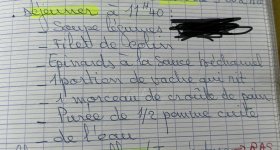 Déjeuner à 11H40 :
- Soupe légumes
- Filet de Colin
- Epinards à la sauce Béchamel
1 portion de vache qui rit
1 morceau de croûte de pain
- Purée de 1/2 pomme cuite
- de l'eau
RAS